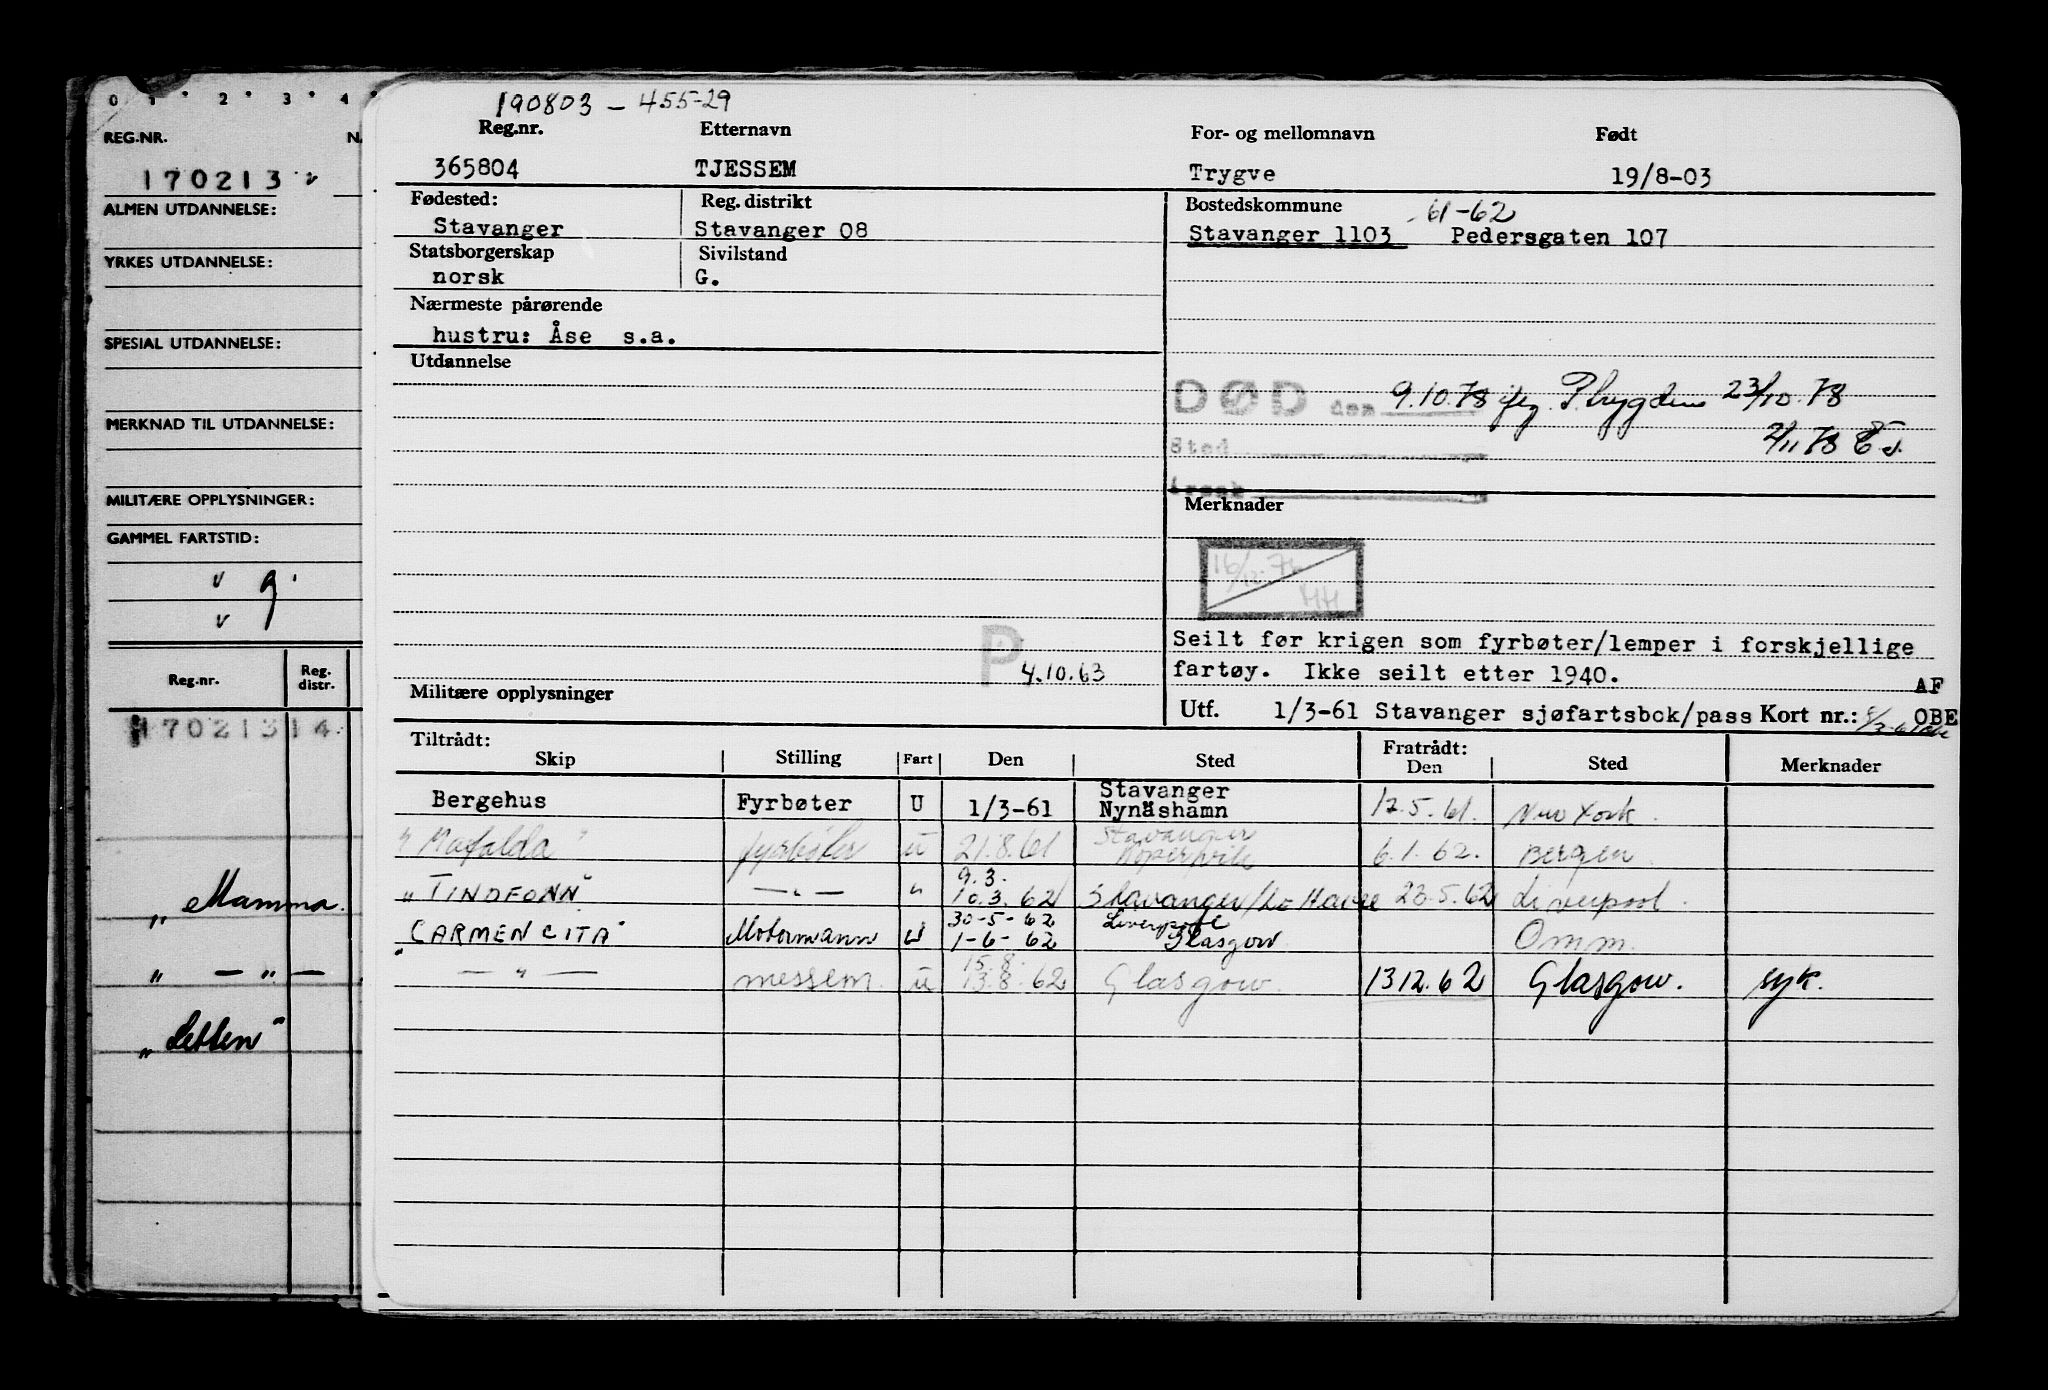 0 1 2 3 4
REG.NR.
170213
ALMEN UTDANNELSE:
YRKES UTDANNELSE:
SPESIAL UTDANNELSE:
MERKNAD TIL UTDANNELSE:
MILITÆRE OPPLYSNINGER:
GAMMEL FARTSTID:
Reg.nr. Reg. distr.
170213 14
„ Mamma
„ — „ —
„ Letten"
190803 - 455-29
Reg.nr. Etternavn For- og mellomnavn Født
365804 TJESSEM Trygve 19/8-03
Fødested: Reg. distrikt Bostedskommune 61-62
Stavanger Stavanger 08 Stavanger 1103 Pedersgaten 107
Statsborgerskap Sivilstand
norsk G.
Nærmeste pårørende
hustru: Åse s.a.
Utdannelse
DØD den 9.10.78 iflg. 23/10.78
Sted 2/11 78
Merknader
16/12.76 HH
Seilt før krigen som fyrbøter/lemper i forskjellige
fartøy. Ikke seilt etter 1940. AF
P 4.10.63
Militære opplysninger
Utf. 1/3-61 Stavanger sjøfartsbok/pass Kort nr.: OBE
Tiltrådt: Fratrådt:
Skip Stilling Fart Den Sted Den Sted Merknader
Bergehus Fyrbøter U 1/3-61 Stavanger Nynäshamn 12.5.61. New York.
"Mafalda" fyrbøter u 21.8.61 Stavanger Kopervik 6.1.62. Bergen.
„TINDFONN" — „ — " 9.3. 10.3.62 Stavanger/Le Havre 23.5.62 Liverpool.
"CARMENCITA" Motormann U 30-5-62 1-6-62 Liverpool Glasgow Omm.
— " — messem. u 15.8. 13.8.62 Glasgow. 13 12.62 Glasgow. syk.